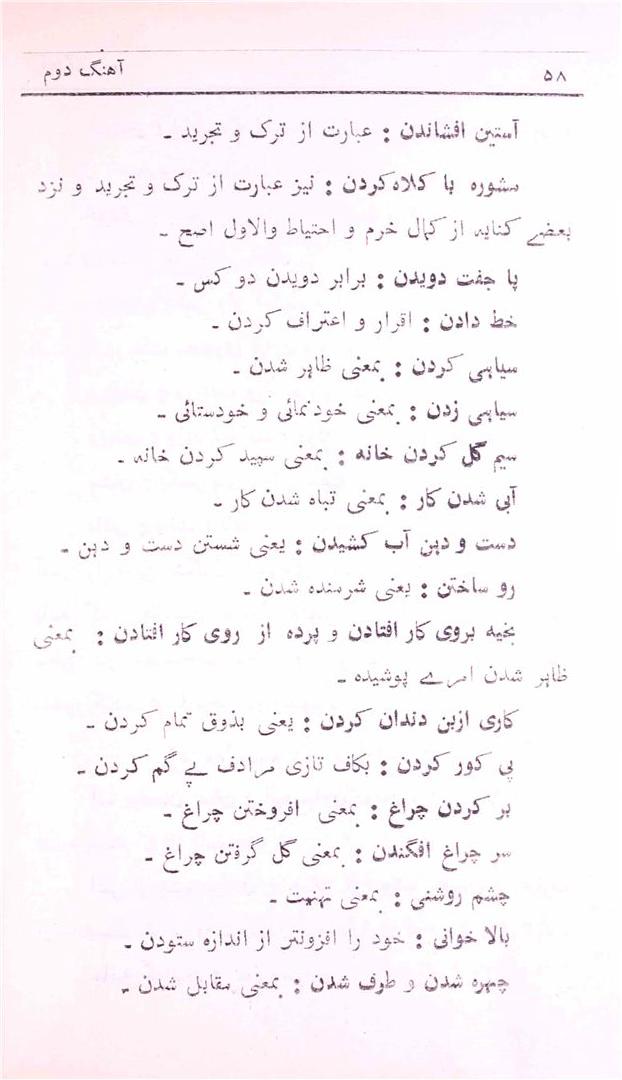 ۵۸ آهنگ دوم
آستین افشاندن : عبارت از ترک و تجرید ـ
مشوره با کلاه کردن : نیز عبارت از ترک و تجرید و نزد
بعضے کنایه از کمال خرم و احتیاط والاول اصح ـ
پا جفت دویدن : برابر دویدن دو کس ـ
خط دادن : اقرار و اعتراف کردن ـ
سیاہی کردن : بمعنی ظاہر شدن ـ
سیاہی زدن : بمعنی خودنمائی و خودستائی ـ
سیم گل کردن خانه : بمعنی سپید کردن خانه ـ
آبی شدن کار : بمعنی تباه شدن کار ـ
دست و دہن آب کشیدن : یعنی شستن دست و دہن ـ
رو ساختن : یعنی شرمنده شدن ـ
بخیه بروی کار افتادن و پرده از روی کار افتادن : بمعنی
ظاہر شدن امرے پوشیده ـ
کاری ازبن دندان کردن : یعنی بذوق تمام کردن ـ
پی کور کردن : بکاف تازی مرادف پے گم کردن ـ
بر کردن چراغ : بمعنی افروختن چراغ ـ
سر چراغ افگندن : بمعنی گل گرفتن چراغ ـ
چشم روشنی : بمعنی تہنیت ـ
بالا خوانی : خود را افزونتر از اندازه ستودن ـ
چہره شدن و طرف شدن : بمعنی مقابل شدن ـ